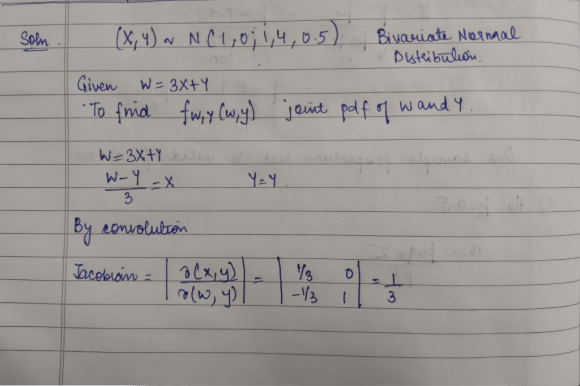 Soln. (X,Y) ~ N(1,0;1,4,0.5) Bivariate Normal
Distribution.
Given W = 3X+Y
To find f_{W,Y}(w,y) joint pdf of W and Y.
W = 3X+Y
\frac{W-Y}{3} = X Y=Y.
By convolution
Jacobian = | ∂(x,y) / ∂(w,y) | = | 1/3 0 | = 1/3
| -1/3 1 |